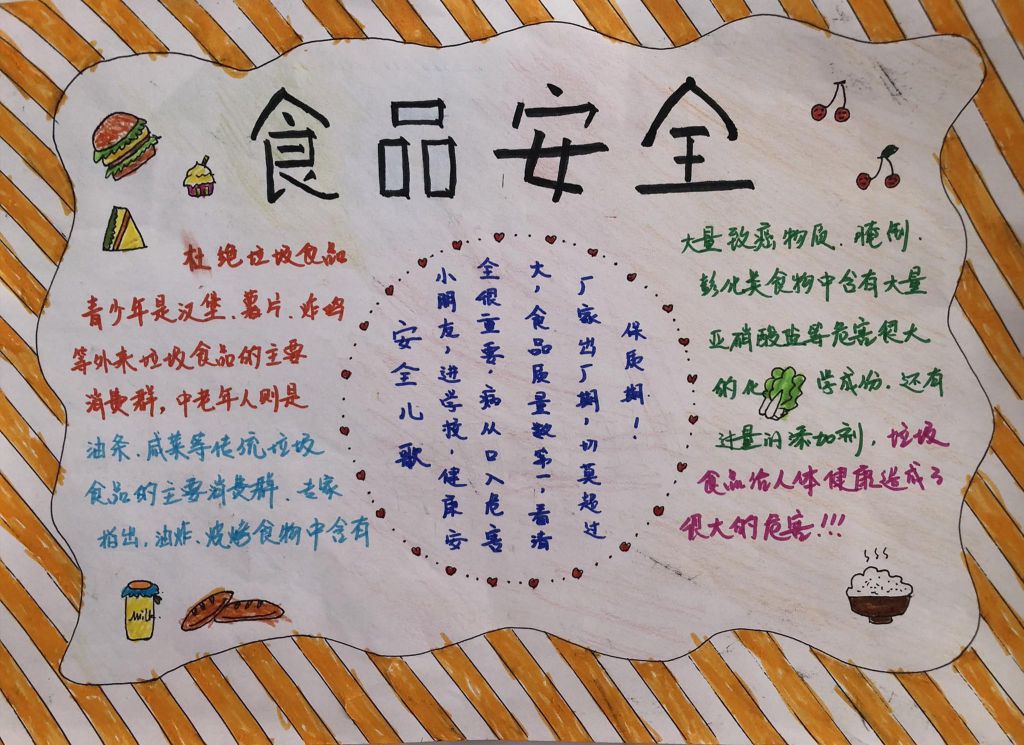 食品安全
杜绝垃圾食品
青少年是汉堡、薯片、炸鸡
等外来垃圾食品的主要
消费群,中老年人则是
油条、咸菜等传统垃圾
食品的主要消费群、专家
指出,油炸、烧烤食物中含有
安全儿歌
小朋友,进学校,健康安
全很重要,病从口入危害
大,食品质量数第一,看清
厂家出厂期,切莫超过
保质期!
大量致癌物质、腌制、
彭化类食物中含有大量
亚硝酸盐等危害很大
的化学成份,还有
过量的添加剂,垃圾
食品给人体健康造成了
很大的危害!!!
Milk